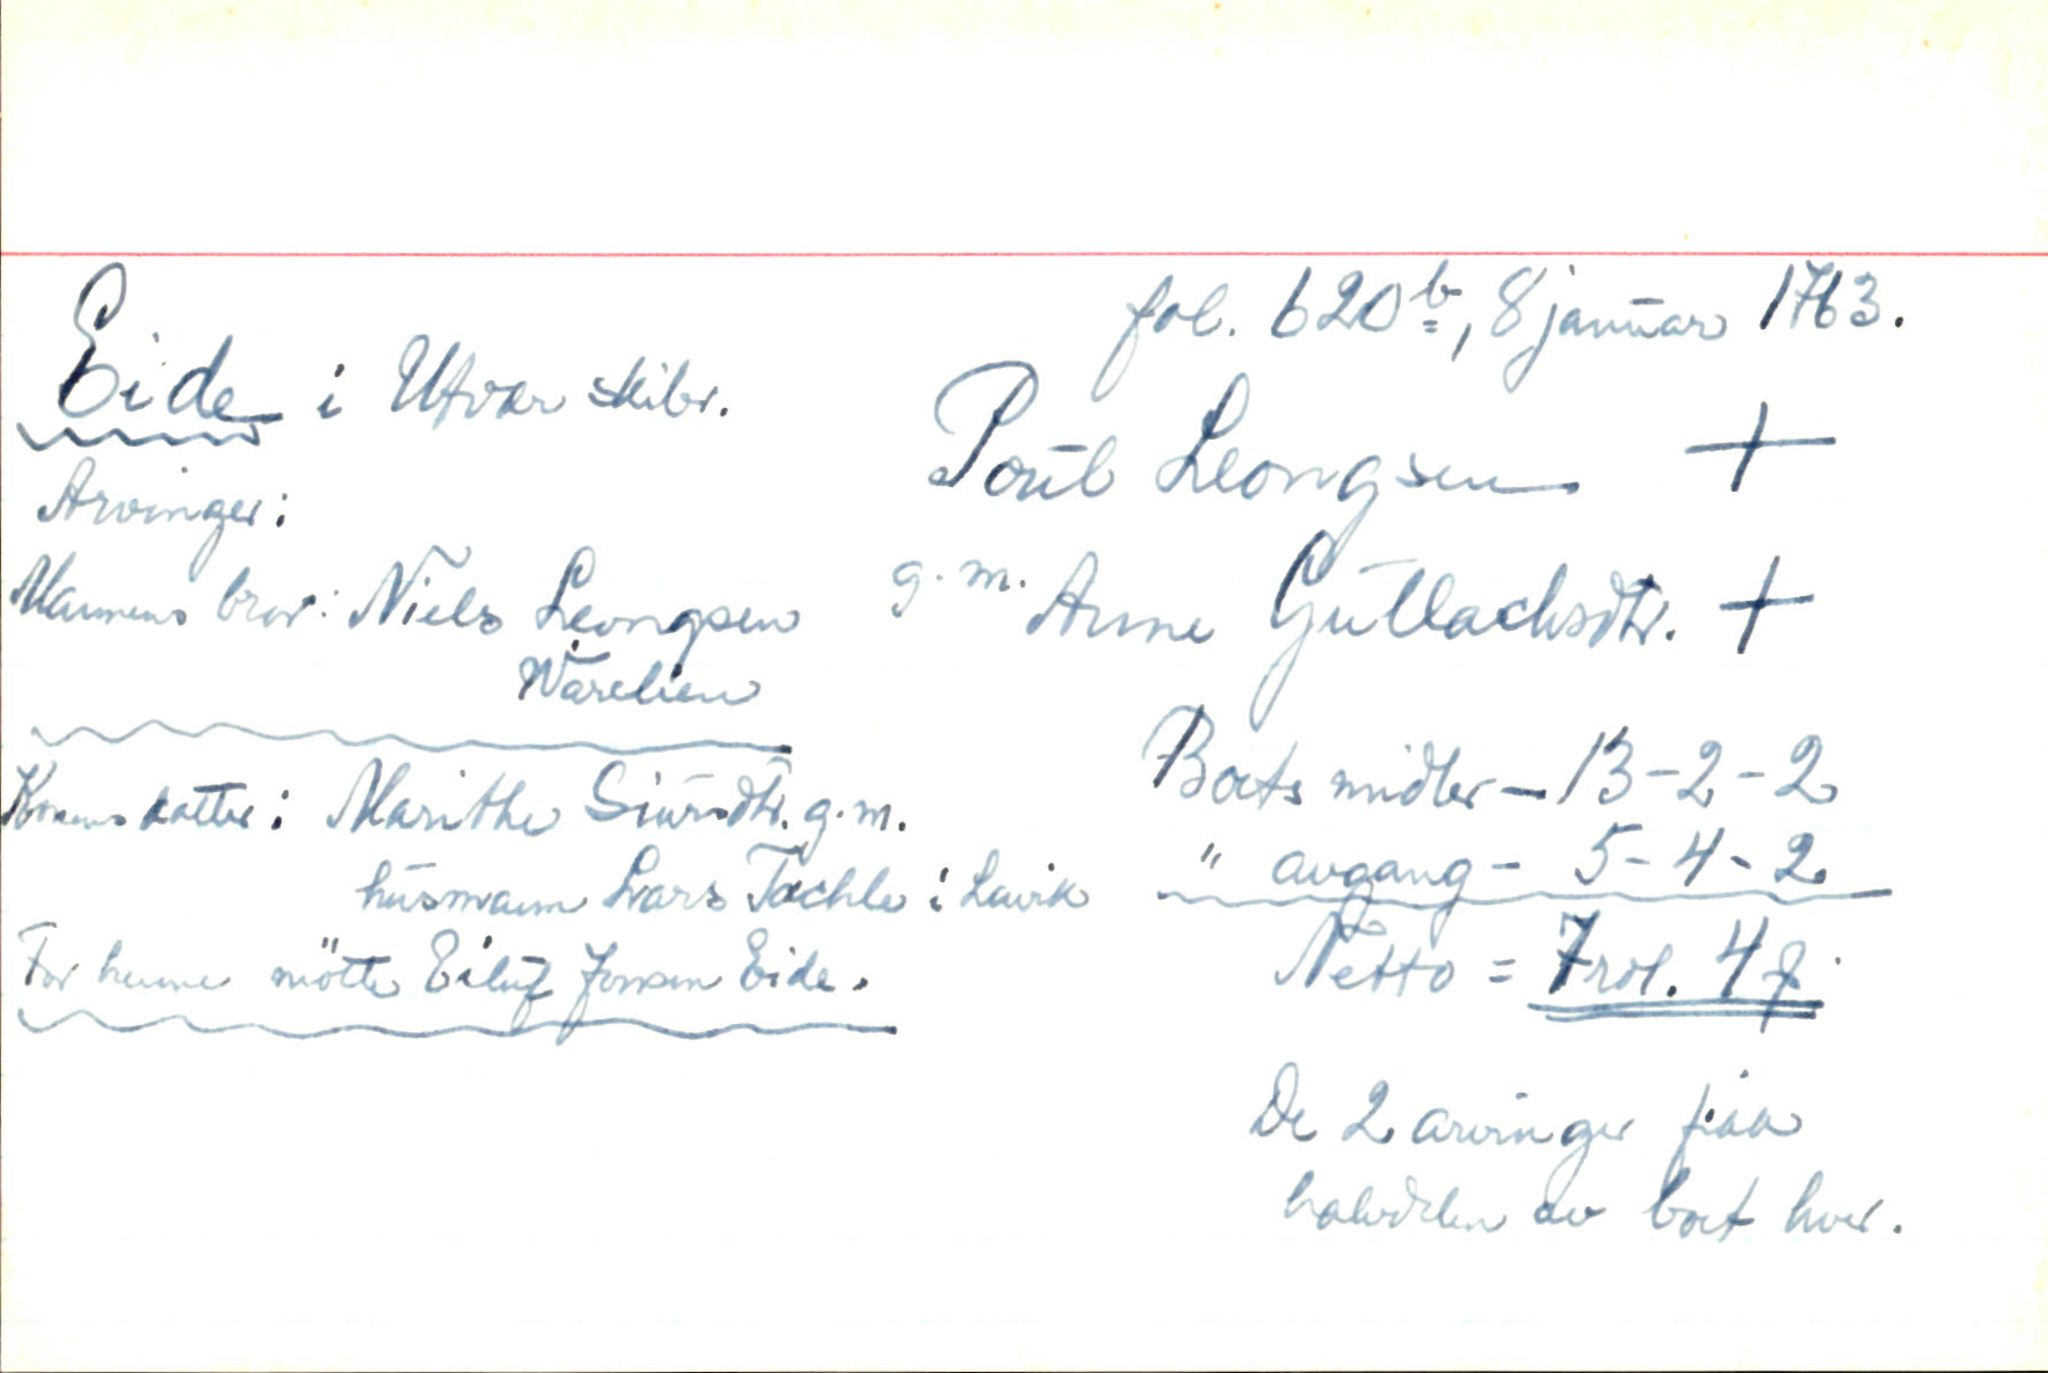 fol. 620b, 8 januar 1763.
Eide i Utvær skibr.
Poul Leongsen +
Arvinger:
g.m. Anne Gullachsdtr. +
Mannens bror: Niels Leongsen
Warelien
Boets midler — 13-2-2
Konens datter: Marithe Siursdtr. g.m.
" avgang - 5-4-2
husmann Lars Tachle i Lavik
Netto = 7 rdl. 4 β
For henne mötte Eiluf Jonsen Eide.
De 2 arvinger fikk
halvdelen av boet hver.